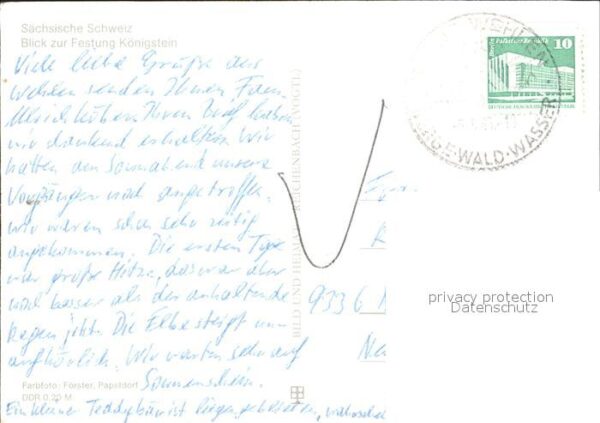 Sächsische Schweiz
Blick zur Festung Königstein
Viele liebe Grüße aus
Wehlen senden Ihnen Fam.
Ihren Brief haben
wir dankend erhalten. Wir
hatten den Sonnabend unsere
Vorgänger noch angetroffen,
wir waren schon sehr zeitig
angekommen. Die ersten Tage
war große Hitze, das war aber
viel besser als der anhaltende
Regen jetzt. Die Elbe steigt un-
aufhörlich. Wir warten sehr auf
Sonnenschein.
Farbfoto: Förster, Papstdorf
DDR 0,20 M
Ein kleiner Teddybär ist liegen geblieben,
BILD UND HEIMAT REICHENBACH (VOGTL)
WEHLEN
BERGE·WALD·WASSER
Berlin Palast der Republik
10
DEUTSCHE DEMOKRATISCHE REPUBLIK
9336
privacy protection
Datenschutz